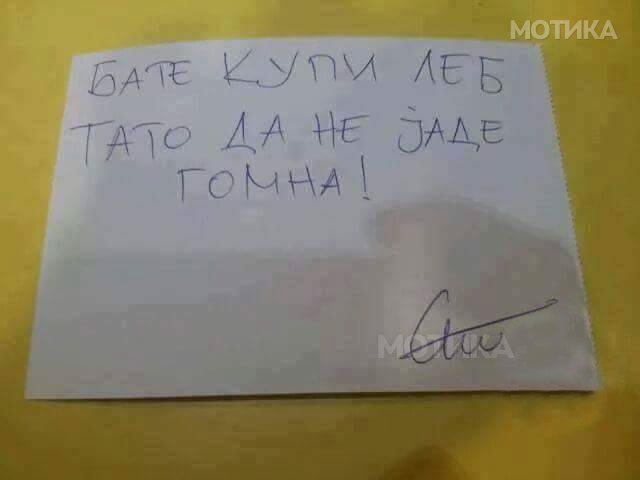 МОТИКА
БАТЕ КУПИ ЛЕБ
ТАТО ДА НЕ ЈАДЕ
ГОМНА!
МОТИКА